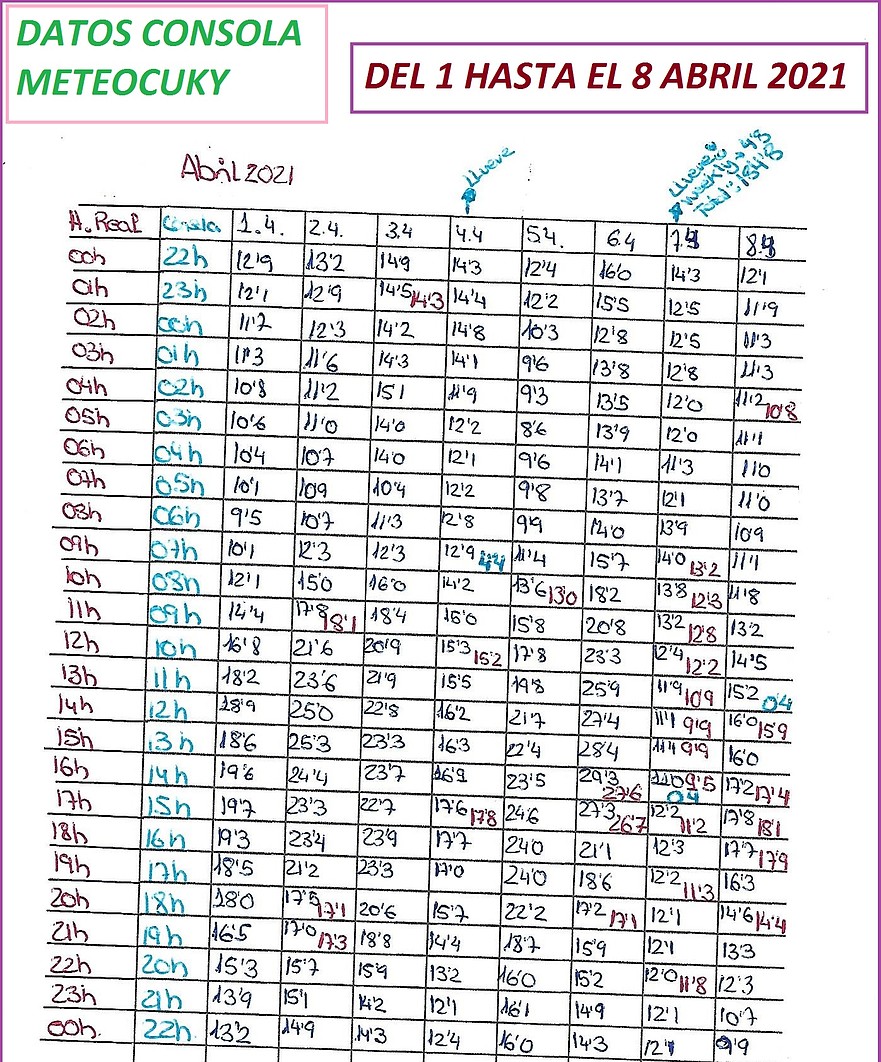 DATOS CONSOLA
METEOCUKY
DEL 1 HASTA EL 8 ABRIL 2021
Abril 2021
llueve
llueve
weekly → 4'8
Total: 154'8
H. Real Consola 1.4. 2.4. 3.4 4.4 5.4. 6.4 7.4 8.4
00h 22h 12'9 13'2 14'9 14'3 12'4 16'0 14'3 12'1
01h 23h 12'1 12'9 14'5 14'3 14'4 12'2 15'5 12'5 11'9
02h 00h 11'7 12'3 14'2 14'8 10'3 12'8 12'5 11'3
03h 01h 11'3 11'6 14'3 14'1 9'6 13'8 12'8 11'3
04h 02h 10'8 11'2 15'1 11'9 9'3 13'5 12'0 11'2 10'8
05h 03h 10'6 11'0 14'0 12'2 8'6 13'9 12'0 11'1
06h 04h 10'4 10'7 14'0 12'1 9'6 14'1 11'3 11'0
07h 05h 10'1 10'9 10'4 12'2 9'8 13'7 12'1 11'0
08h 06h 9'5 10'7 11'3 12'8 9'9 14'0 13'9 10'9
09h 07h 10'1 12'3 12'3 12'9 4'4 11'4 15'7 14'0 13'2 11'1
10h 08h 12'1 15'0 16'0 14'2 13'6 13'0 18'2 13'8 12'3 11'8
11h 09h 14'4 17'8 18'1 18'4 15'0 15'8 20'8 13'2 12'8 13'2
12h 10h 16'8 21'6 20'9 15'3 15'2 17'8 23'3 12'4 12'2 14'5
13h 11h 18'2 23'6 21'9 15'5 19'8 25'9 11'9 10'9 15'2 0'4
14h 12h 18'9 25'0 22'8 16'2 21'7 27'4 11'1 9'9 16'0 15'9
15h 13h 18'6 25'3 23'3 16'3 22'4 28'4 11'4 9'9 16'0
16h 14h 19'6 24'4 23'7 16'9 23'5 29'3 27'6 11'0 9'5 0'4 17'2 17'4
17h 15h 19'7 23'3 22'7 17'6 17'8 24'6 27'3 26'7 12'2 11'2 17'8 18'1
18h 16h 19'3 23'4 23'9 17'7 24'0 21'1 12'3 17'7 17'9
19h 17h 18'5 21'2 23'3 17'0 24'0 18'6 12'2 11'3 16'3
20h 18h 18'0 17'5 17'1 20'6 15'7 22'2 17'2 17'1 12'1 14'6 14'4
21h 19h 16'5 17'0 17'3 18'8 14'4 18'7 15'9 12'1 13'3
22h 20h 15'3 15'7 15'9 13'2 16'0 15'2 12'0 11'8 12'3
23h 21h 13'9 15'1 14'2 12'1 16'1 14'9 12'1 10'7
00h. 22h. 13'2 14'9 14'3 12'4 16'0 14'3 12'1 9'9